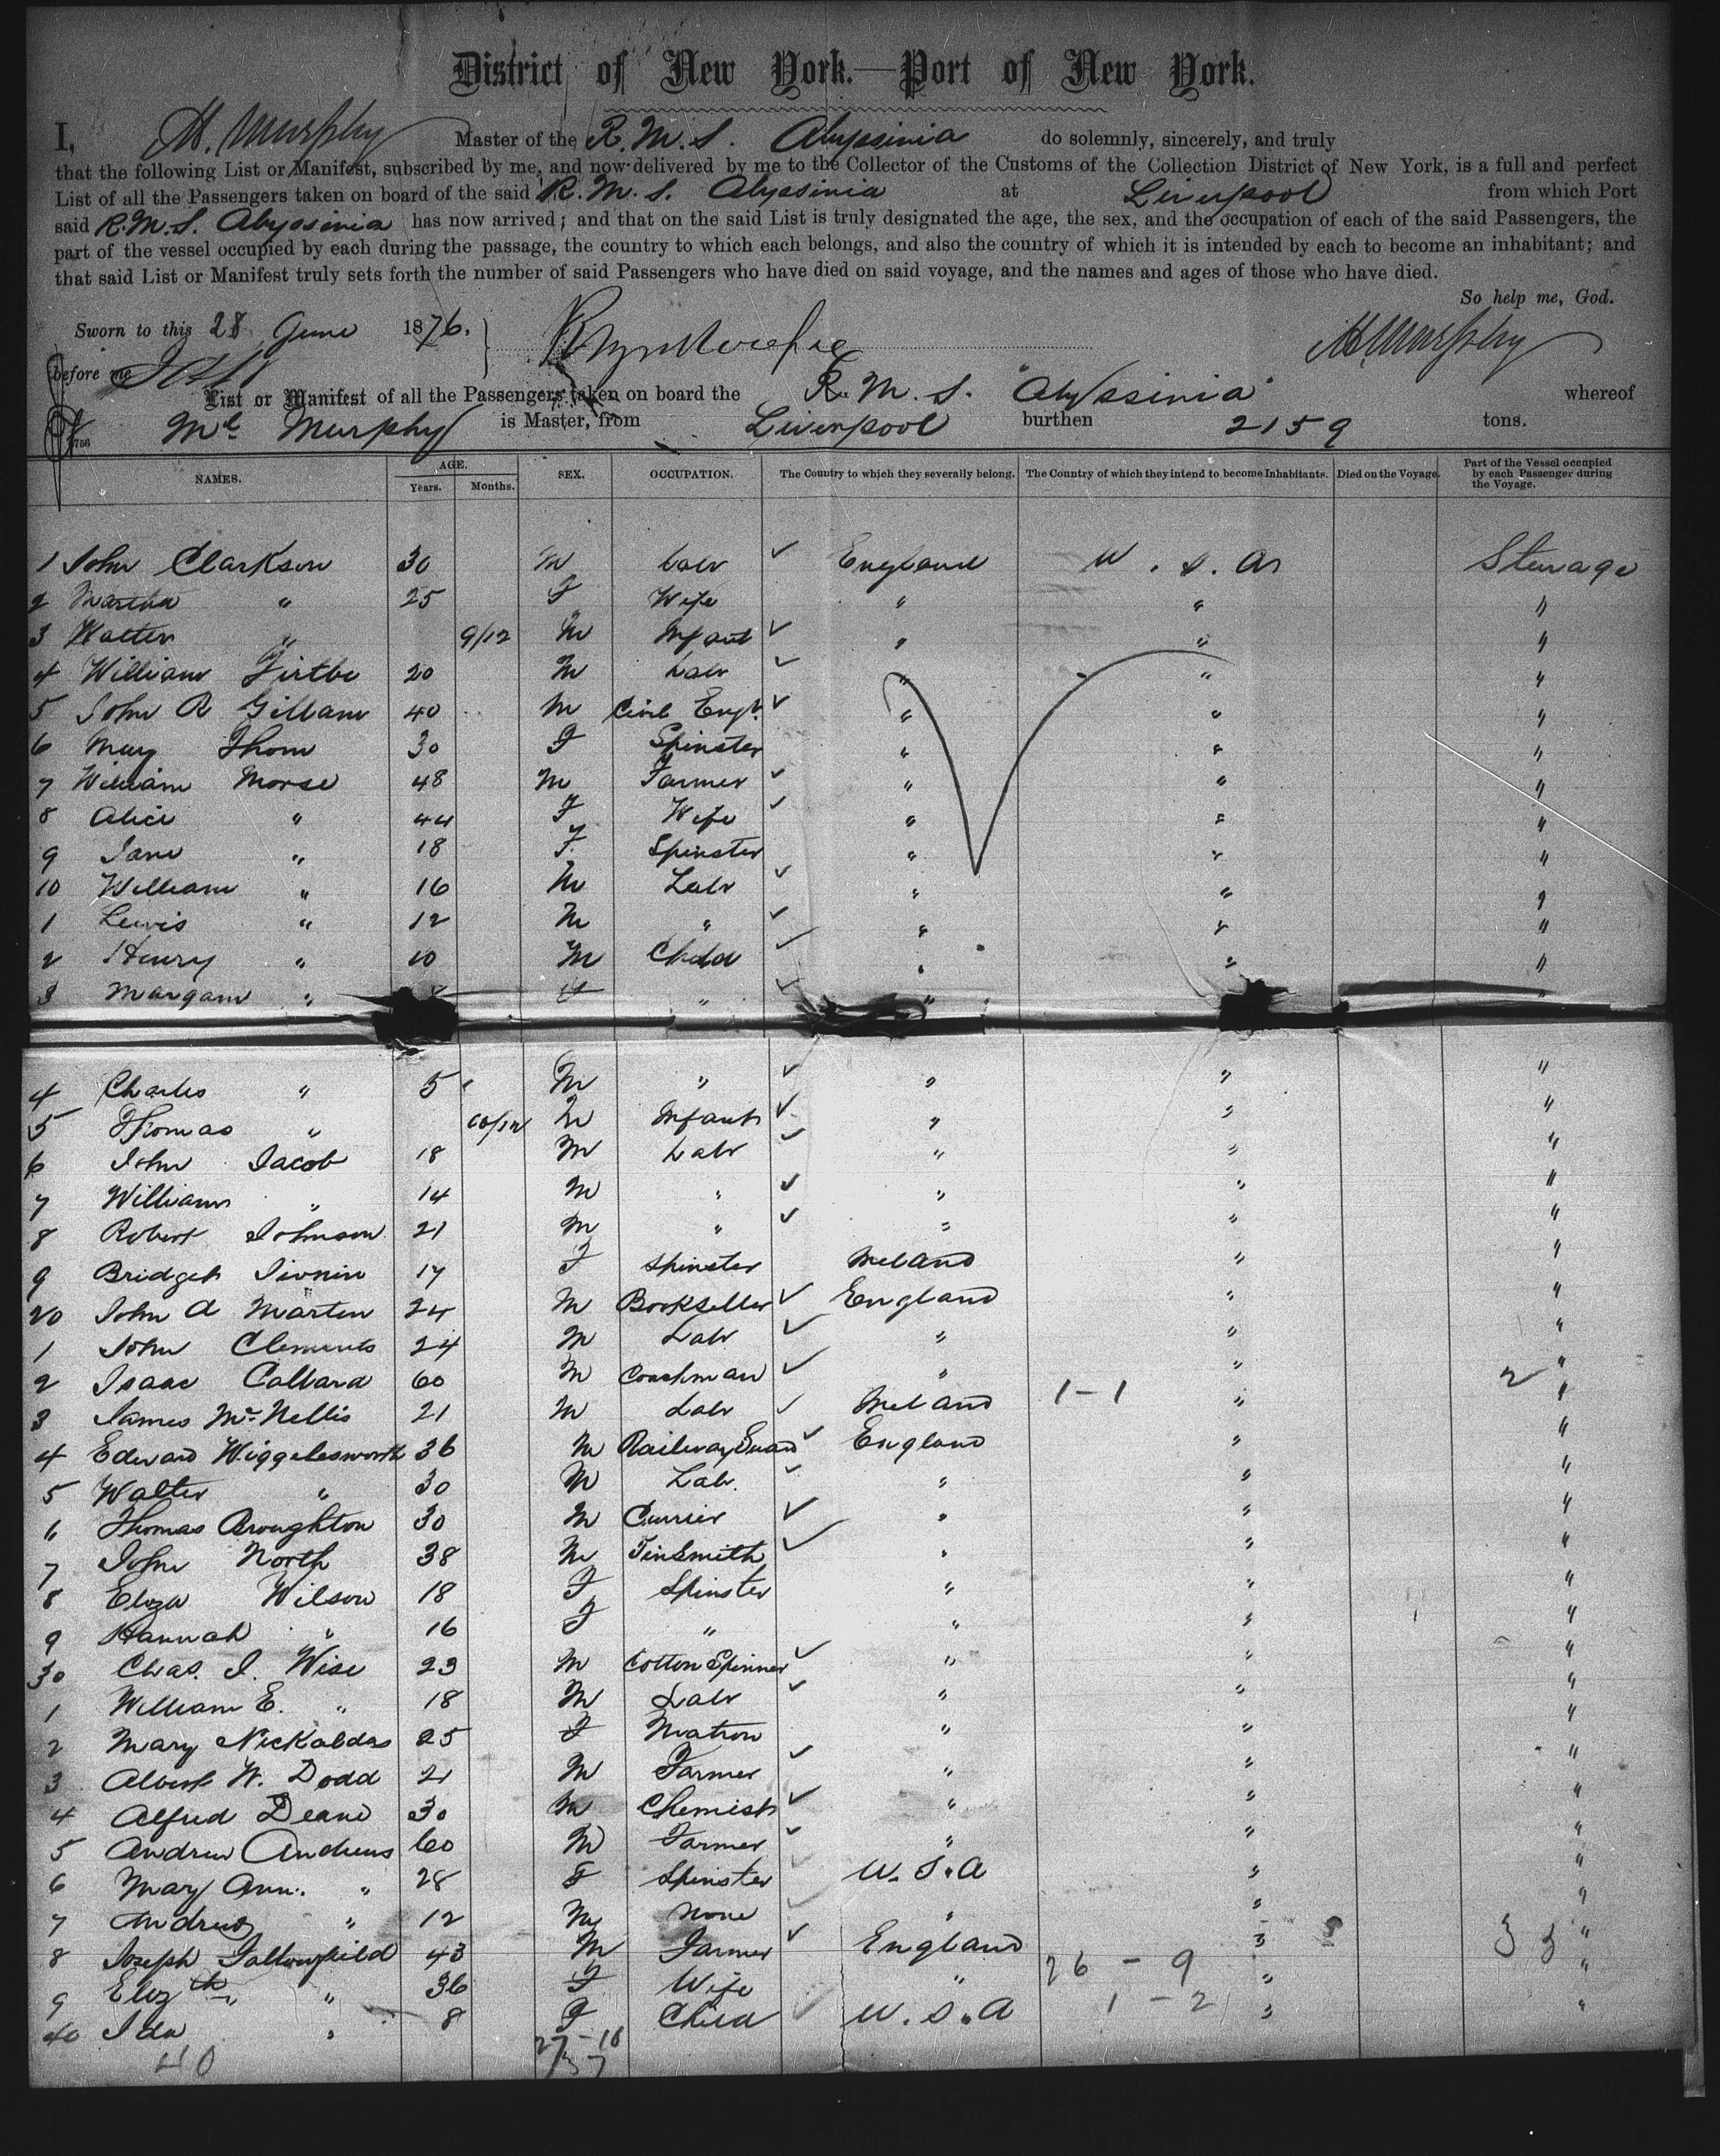 District of New York.—Port of New York.
I, M. Murphy Master of the R.M.S. Abyssinia do solemnly, sincerely, and truly
that the following List or Manifest, subscribed by me, and now delivered by me to the Collector of the Customs of the Collection District of New York, is a full and perfect
List of all the Passengers taken on board of the said R.M.S. Abyssinia at Liverpool from which Port
said R.M.S. Abyssinia has now arrived; and that on the said List is truly designated the age, the sex, and the occupation of each of the said Passengers, the
part of the vessel occupied by each during the passage, the country to which each belongs, and also the country of which it is intended by each to become an inhabitant; and
that said List or Manifest truly sets forth the number of said Passengers who have died on said voyage, and the names and ages of those who have died.
So help me, God.
Sworn to this 28 June 1876. M. Murphy
before me
List or Manifest of all the Passengers taken on board the R.M.S. "Abyssinia" whereof
Murphy is Master, from Liverpool burthen 2159 tons.
NAMES. AGE. Years. Months. SEX. OCCUPATION. The Country to which they severally belong. The Country of which they intend to become Inhabitants. Died on the Voyage. Part of the Vessel occupied by each Passenger during the Voyage.
1 John Clarkson 30 M Labr England U.S.A Steerage
2 Martha " 25 F Wife " " "
3 Walter " 9/12 M Infant " " "
4 William 20 M Labr " " "
5 John R Gillam 40 M Civil Engr. " " "
6 Mary Thom 30 F Spinster " " "
7 William Morse 48 M Farmer " " "
8 Alice " 44 F Wife " " "
9 Jane " 18 F. Spinster " " "
10 William " 16 M Labr " " "
1 Lewis " 12 M " " " "
2 Henry " 10 M Child " " "
3 " F " " " "
4 Charles " 5 M " " " "
5 Thomas " 10/12 M Infant " " "
6 John Jacob 18 M Labr " " "
7 William " 14 M " " " "
8 Robert Johnson 21 M " " " "
9 Bridget 17 F Spinster Ireland " "
20 John A Martin 24 M Bookseller England " "
1 John Clements 24 M Labr " " "
2 Isaac Collard 60 M Coachman " " "
3 James McNellis 21 M Labr Ireland 1-1 " 2 "
4 Edward Wigglesworth 36 M Railway Guard England " "
5 Walter " 30 M Labr. " " "
6 Thomas Broughton 30 M Currier " " "
7 John North 38 M Tinsmith " " "
8 Eliza Wilson 18 F Spinster " " "
9 Hannah " 16 F " " " "
30 Chas. J. Wise 23 M Cotton Spinner " " "
1 William E. " 18 M Labr " " "
2 Mary 25 F Matron " " "
3 Albert W. Dodd 21 M Farmer " " "
4 Alfred Deane 30 M Chemist " " "
5 Andrew Andrews 60 M Farmer " " "
6 Mary Ann. " 28 F Spinster U.S.A " "
7 Andrew " 12 M None " " "
8 Joseph 43 M Farmer England " 33 "
9 Elizth " 36 F Wife " 26 - 9 " "
40 Ida " 8 F Child U.S.A 1 - 2 " "
40 27-10
37